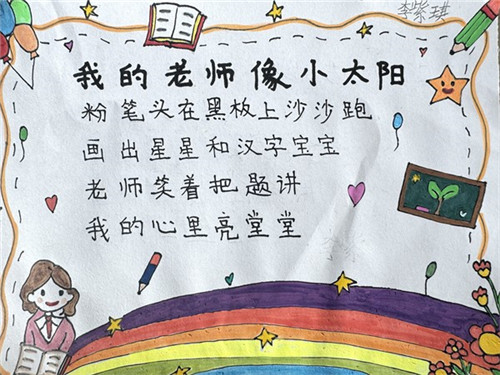 李紫琪
我的老师像小太阳
粉笔头在黑板上沙沙跑
画出星星和汉字宝宝
老师笑着把题讲
我的心里亮堂堂